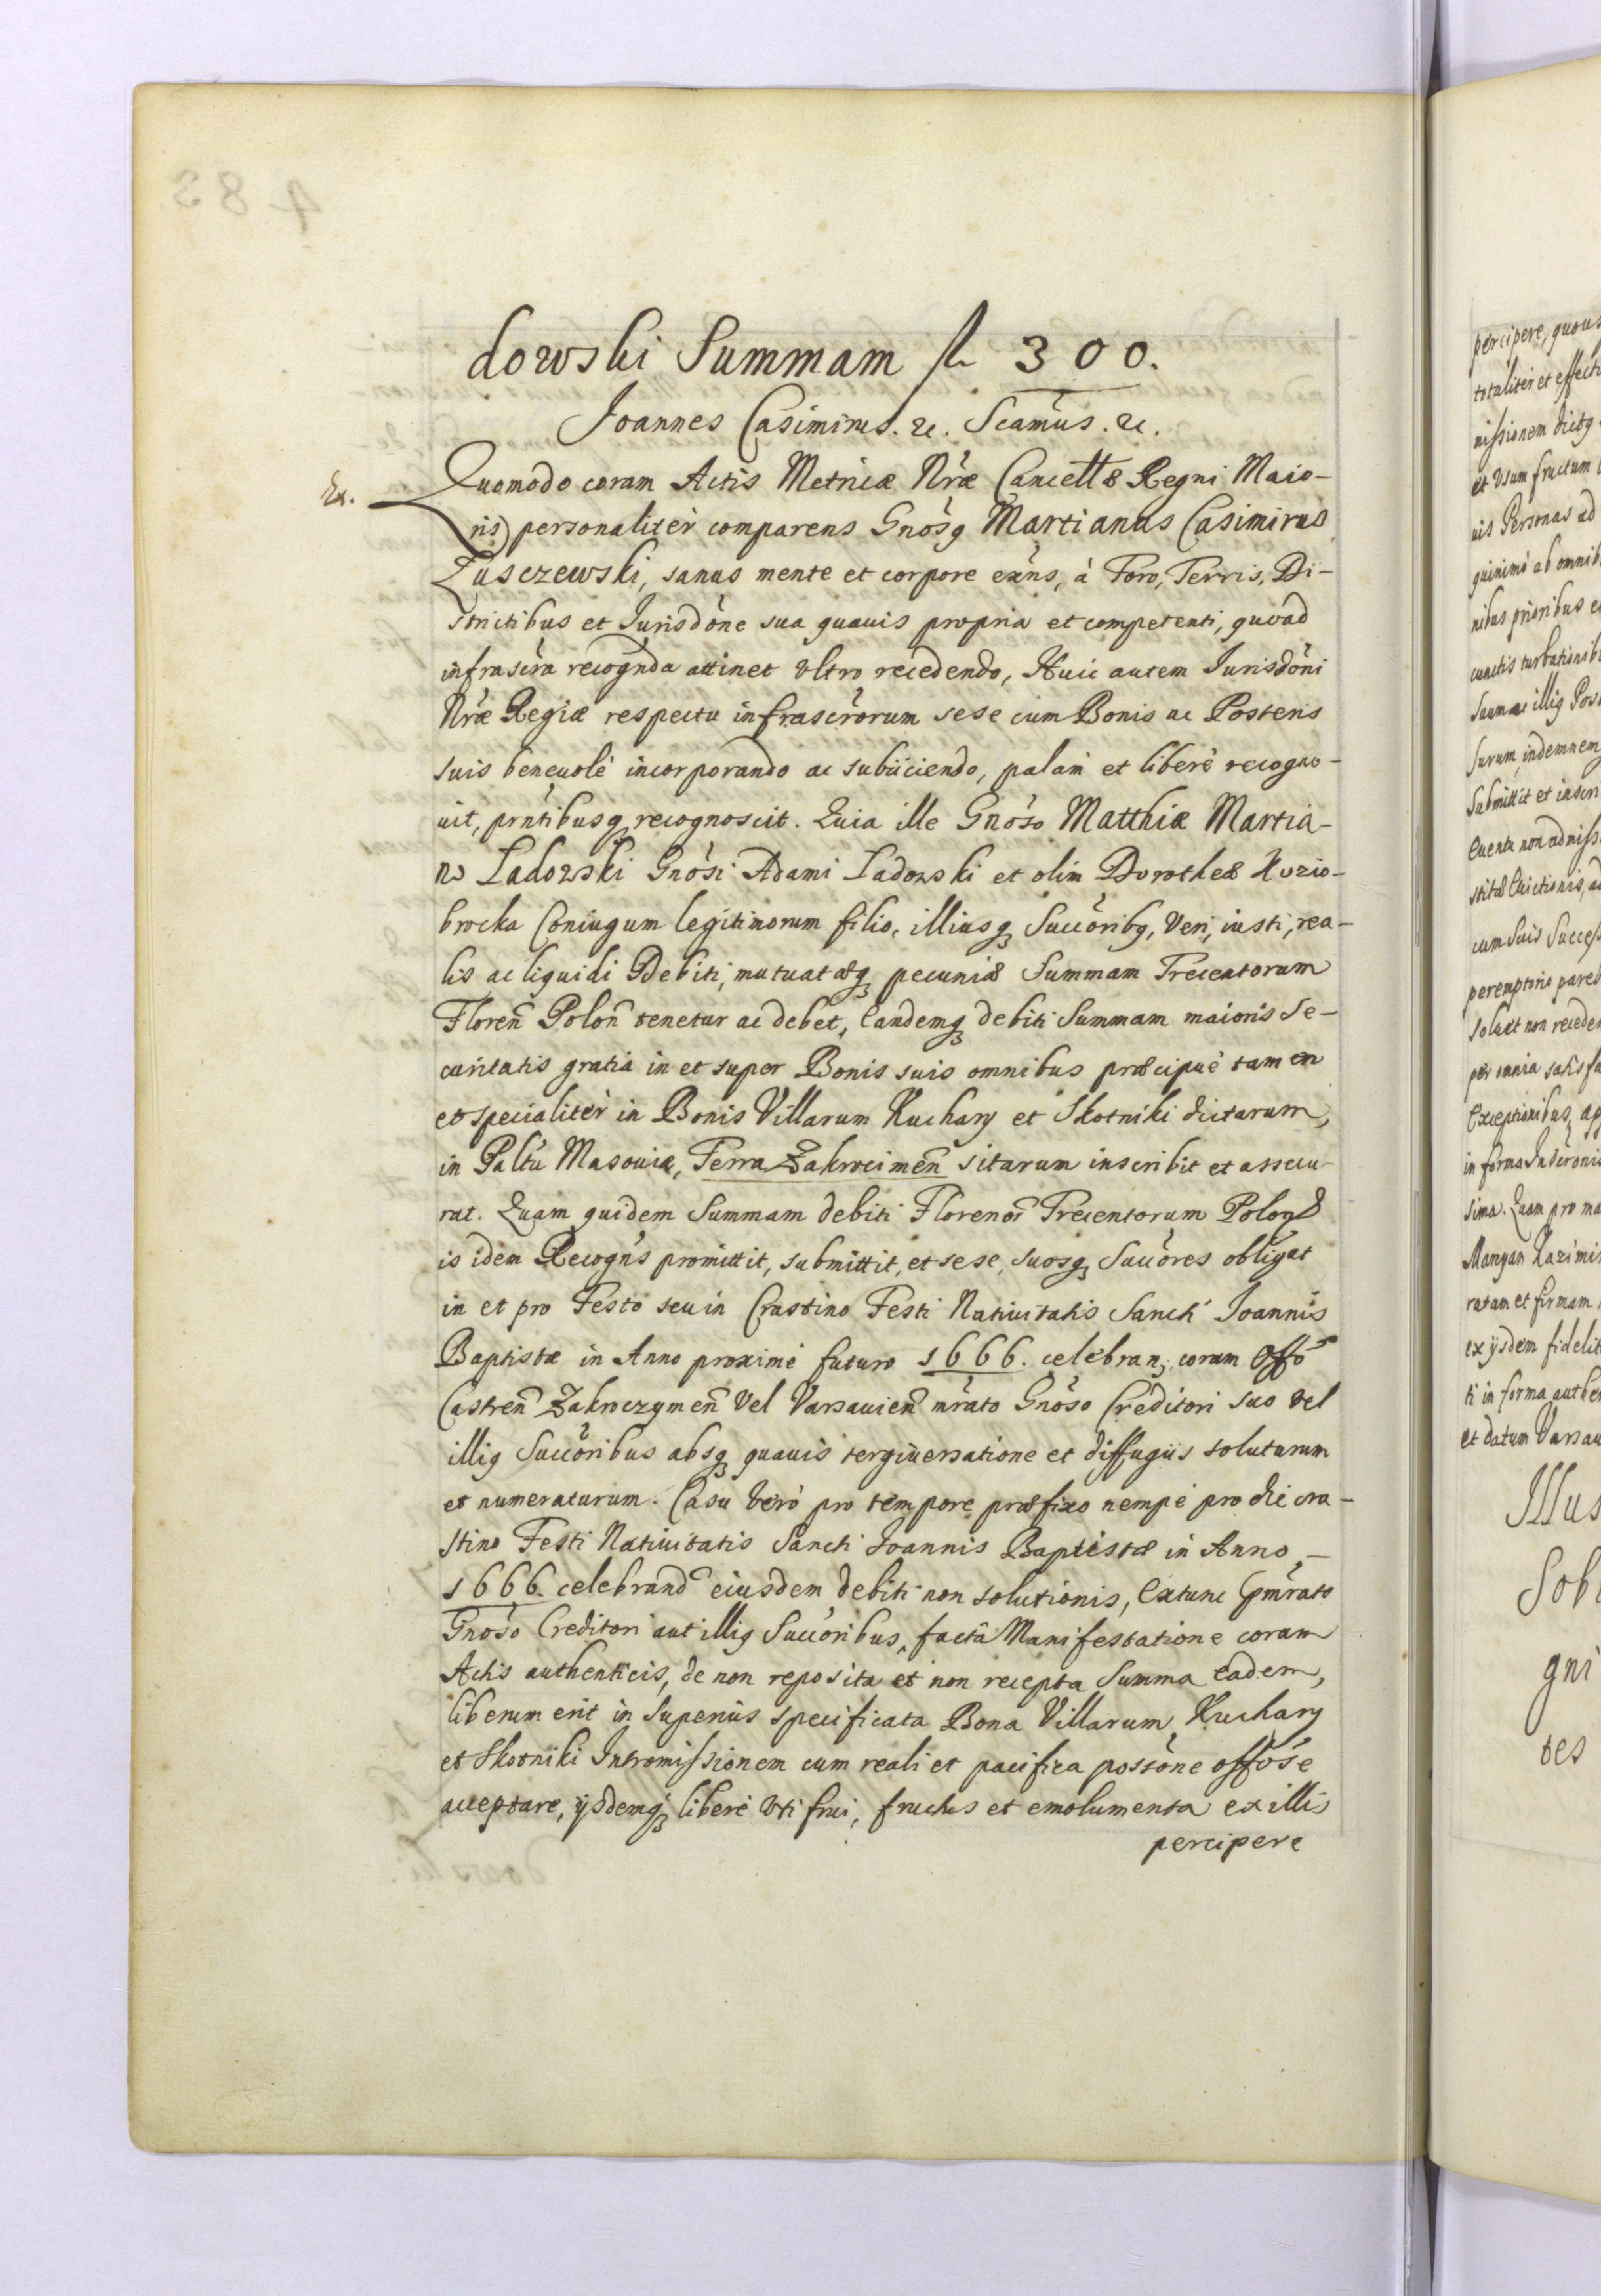 dowski Summam fl 300.
Joannes Casimirus. &c. Scamus. &c.
Ex.
Quomodo coram Actis Metricæ Nræ Cancellæ Regni Maio-
ris personaliter comparens Gnosq Martianus Casimirus
Zusczewski, sanus mente et corpore exns, à Foro, Terris, Di-
strictibus et Jurisdone sua quavis propria et competenti, quoad
infrascra recognda attinet ultro recedendo, Huic autem Jurisdoni
Nræ Regiæ respectu infrascrorum sese cum Bonis ac Posteris
suis beneuolè incorporando ac subiiciendo, palam et liberè recogno-
uit, prntibusq recognoscit. Quia ille Gnoso Matthiæ Martia-
no Ladowski Gnosi Adami Ladowski et olim Dorotheæ Kozio-
brocka Coniugum legitimorum filio, illiusq Succoribq, Veri, iusti, rea-
lis ac liquidi Debiti, mutuatæq pecuniæ Summam Trecentorum
Floren Polon tenetur ac debet, Eandemq debiti Summam maioris se-
curitatis gratia in et super Bonis suis omnibus præcipuè tamen
et specialiter in Bonis Villarum Kuchary et Skotniki dictarum,
in Paltu Masouiæ, Terra Zakrocimen sitarum inscribit et assecu-
rat. Quam quidem Summam debiti Florenor Trecentorum Polon
is idem Recogns promittit, submittit, et sese, suosq Succores obligat
in et pro Festo seu in Crastino Festi Natiuitatis Sancti Joannis
Baptistæ in Anno proximè futuro 1666. celebran, coram Offo
Castren Zakroczymen Vel Varsauien mrato Gnoso Creditori suo vel
illiq Succoribus absq quauis tergiuersatione et diffugiis soluturum
et numeraturum. Casu verò pro tempore præfixo nempè pro die cra-
stino Festi Natiuitatis Sancti Joannis Baptistæ in Anno,-
1666. celebrand eiusdem debiti non solutionis, Extunc pmrato
Gnoso Creditori aut illiq Succoribus, factâ Manifestatione coram
Actis authenticis, de non reposita et non recepta Summa eadem,
liberum erit in Superiùs specificata Bona Villarum Kuchary
et Skotniki Intromissionem cum reali et pacifica possone offose
acceptare, ijsdemq liberè uti frui, fructus et emolumenta ex illis
percipere
percipere, quous
totaliter et effecti
missionem dictq
et Usum fructum
uis Personas ad
quinimò ab omnib
nibus prioribus e
cunctis turbationib
Summæ illiq Pos
surum, indemnem
Submittit et inscri
Euentu non admiss
stitæ Euictionis, a
cum suis Success
peremptoriè pareb
soluet non receden
per omnia satisfa
Exceptionibus, ap
in forma Inscronis
sima. Quam pro ma
Maryan Kazimir
ratam et firmam
ex ijsdem fidelit
ti in forma authen
et datum Varsau
Illus
Sob
gni
tes